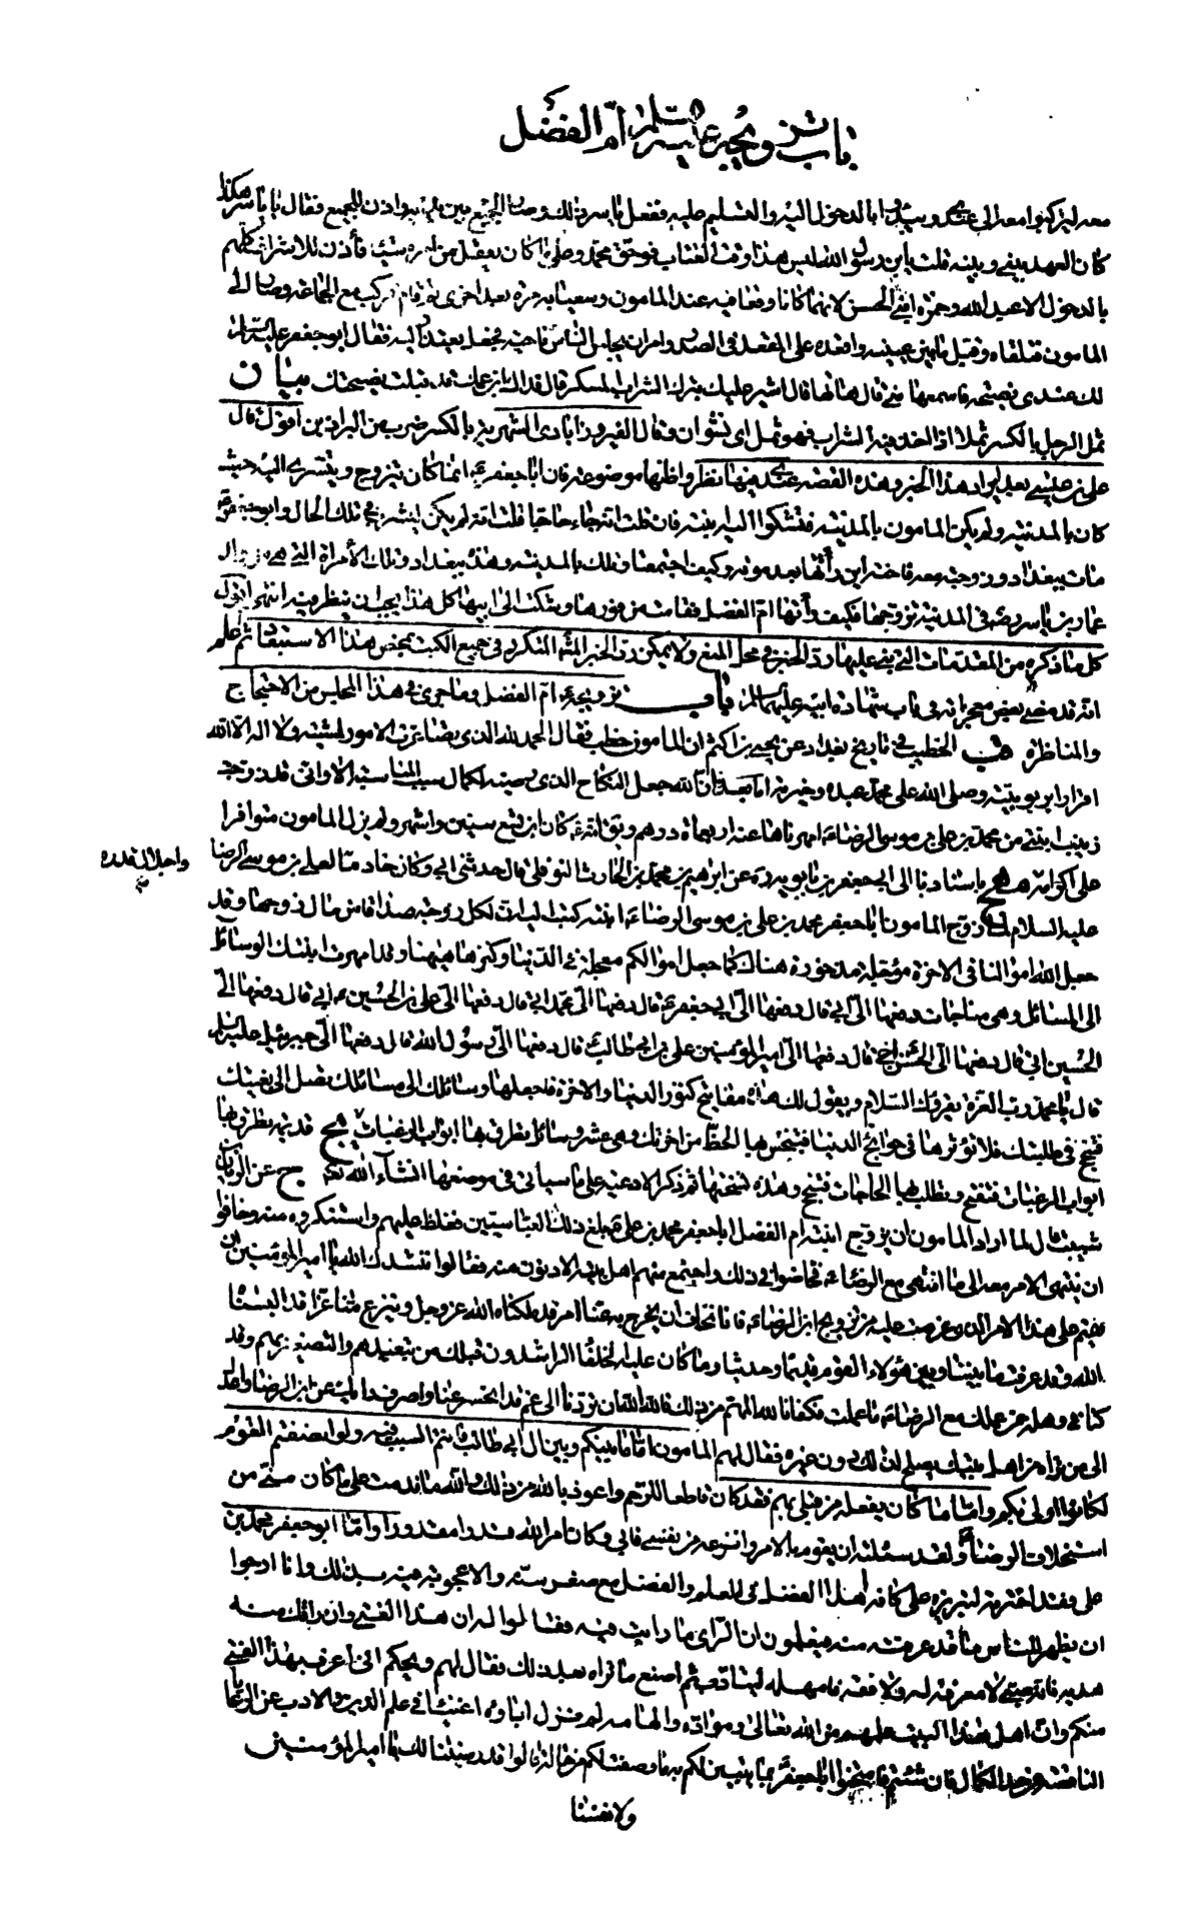 باب تزويجه عليه السلام أمّ الفضل
معه ليركبوا معه الى عندي ويبدؤا بالدخول اليه والتسليم عليه ففعل ياسر ذلك وصار الجميع بين يديه واذن للجميع فقال يا ياسر هكذا
كان العهد بيني وبينه قلت يا بن رسول الله ليس هذا وقت العتاب فوحق محمد وعلي ما كان يعقل من امره شيئا فأذن للاشراف كلهم
بالدخول الا عبد الله وحمزة ابني الحسن لانهما كانا وقعا فيه عند المامون وسعيا به مرة بعد اخرى ثم قام فركب مع الجماعة وصار الى
المامون فتلقاه وقبل ما بين عينيه واقعده على المقعد في الصدر وامر ان يجلس الناس ناحية فجعل يعتذر اليه فقال ابو جعفر عليه السلام
لك عندي نصيحة فاسمعها مني قال هاتها قال اشير عليك بترك الشراب المسكر قال فداك ابن عمك قد قبلت نصيحتك بيان
ثمل الرجل بالكسر ثملا اذا اخذ فيه الشراب فهو ثمل اى نشوان وقال الفيروزابادى الشهريز بالكسر ضرب من البراذين اقول قال
علي بن عيسى بعد ايراد هذا الخبر وهذه القصة عندي فيها نظر واظنها موضوعة فان ابا جعفر ع انما كان يتزوج ويتسرى حيث
كان بالمدينة ولم يكن المامون بالمدينة فتشكوا اليه ابنته فان قلت انه جاء حاجا قلت انه لم يكن ليشرب في تلك الحال وابو جعفر ع
مات ببغداد وزوجته معه فاخته اين رأتها بعد موته وكيف اجتمعتا وتلك بالمدينة وهذه ببغداد وتلك الأمراة التي هي من ولد
عمار بن ياسر رضه في المدينة تزوجها فكيف رأتها ام الفضل فقامت من فورها وشكت الى ابيها كل هذا يجب ان ينظر فيه انتهى اقول
كل ما ذكره من المقدمات التي بنى عليها رد الخبر في محل المنع ولا يمكن رد الخبر المشهور المتكرر في جميع الكتب بمحض هذا الاستبعاد ثم اعلم
انه قد مضى بعض معجزاته في باب شهادة ابيه عليهما السلام باب تزويجه ع ام الفضل وما جرى في هذا المجلس من الاحتجاج
والمناظرة قب الخطيب في تاريخ بغداد عن يحيى بن اكثم ان المامون خطب فقال الحمد لله الذي تصاغرت الامور لمشيته ولا اله الا الله
اقرارا بربوبيته وصلى الله على محمد عبده وخيرته اما بعد فان الله جعل النكاح الذي رضيه لكمال سبب المناسبة الا واني قد زوجت
زينب ابنتي من محمد بن علي بن موسى الرضا ع امهرناها عنه اربعماة درهم ويق انه ع كان ابن تسع سنين واشهر ولم يزل المامون متوافرا
على اكرامه مهج باسناده الى ابى جعفر بن بابويه ره عن ابراهيم بن محمد بن الحارث النوفلي قال حدثني ابي وكان خادما لعلي بن موسى الرضا
واجلال قدره
عليه السلام لما زوج المامون ابا جعفر محمد بن علي بن موسى الرضا ع ابنته كتب اليه ان لكل زوجة صداقا من مال زوجها وقد
جعل الله اموالنا في الاخرة مؤجلة مذخورة هناك كما جعل اموالكم معجلة في الدنيا وكنزها ههنا وقد امهرت ابنتك الوسائل
الى المسائل وهي مناجات دفعها الىّ ابي قال دفعها الىّ ابي جعفر ع قال دفعها الىّ محمد ابي قال دفعها الىّ علي بن الحسين ع ابي قال دفعها الىّ
الحسين ابي قال دفعها الىّ الحسن اخي قال دفعها الىّ امير المؤمنين علي بن ابي طالب ع قال دفعها الىّ رسول الله قال دفعها الىّ جبرئيل عليه السلام
قال يا محمد رب العزة يقرئك السلام ويقول لك هذه مفاتيح كنوز الدنيا والاخرة فاجعلها وسائلك الى مسائلك تصل الى بغيتك
فتنجح في طلبتك فلا تؤثرها في حوائج الدنيا فتبخس بها الحظ من اخرتك وهي عشر وسائل تطرق بها ابواب الرغبات فتفتح
ابواب الرغبات فتفتح وتطلب بها الحاجات فتنجح وهذه نسختها ثم ذكر الادعية على ما سياتي في موضعها انشآء الله تعالى ج عن الريان بن
شبيب قال لما اراد المامون ان يزوج ابنته ام الفضل ابا جعفر محمد بن علي ع بلغ ذلك العباسيين فغلظ عليهم واستنكروه منه وخافوا
ان ينتهى الامر معه الى ما انتهى مع الرضا ع فخاضوا في ذلك واجتمع منهم اهل بيته الادنون منه فقالوا ننشدك الله يا امير المؤمنين ان
تقيم على هذا الامر الذي عزمت عليه من تزويج ابن الرضا ع فانا نخاف ان يخرج به عنا امر قد ملكناه الله عز وجل وينزع منا عزا قد البسناه
الله وقد عرفت ما بيننا وبين هؤلاء القوم قديما وحديثا وما كان عليه الخلفاء الراشدون قبلك من تبعيدهم والتصغير بهم وقد
كنا في وهلة من عملك مع الرضا ع ما عملت فكفانا الله المهم من ذلك فالله الله ان تردنا الى غم قد انحسر عنا واصرف رايك عن ابن الرضا واعدل
الى من تراه من اهل بيتك يصلح لذلك دون غيره فقال لهم المامون اما ما بينكم وبين ال ابي طالب فانتم السبب فيه ولو انصفتم القوم
لكانوا اولى بكم واما ما كان يفعله من قبلي بهم فقد كان قاطعا للرحم واعوذ بالله من ذلك والله ما ندمت على ما كان منى من
استخلاف الرضا ع ولقد سئلته ان يقوم بالامر وانزعه من نفسي فابى وكان امر الله قدرا مقدورا واما ابو جعفر محمد بن
علي فقد اخترته لتبريزه على كافة اهل الفضل في العلم والفضل مع صغر سنه والاعجوبة فيه بذلك وانا ارجوا
ان يظهر للناس ما قد عرفته منه فيعلمون ان الرأى ما رايت فيه فقالوا له ان هذا الفتى وان راقك منه
هديه فانه صبى لا معرفة له ولا فقه فامهله ليتادب ثم اصنع ما تراه بعد ذلك فقال لهم ويحكم انى اعرف بهذا الفتى
منكم وان اهل هذا البيت علمهم من الله تعالى ومواده والهامه لم يزل اباؤه اغنياء في علم الدين والادب عن الرعايا
الناقصة عن حد الكمال فان شئتم فامتحنوا ابا جعفر بما يتبين لكم به ما وصفت لكم من حاله قالوا قد رضينا لك يا امير المؤمنين
ولانفسنا